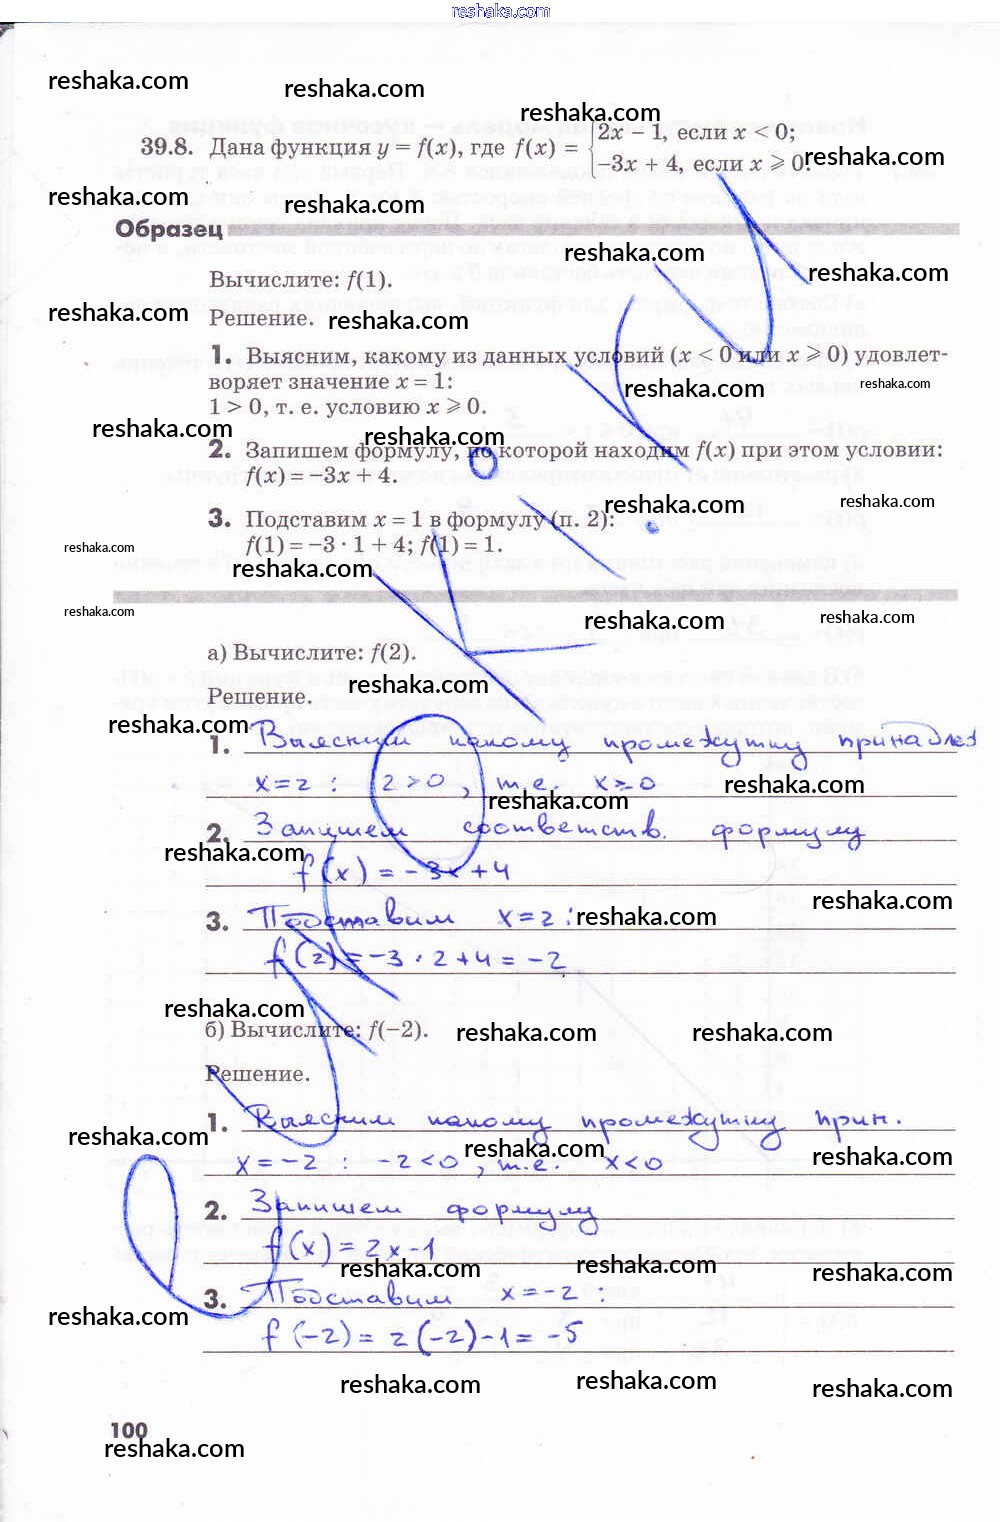 reshaka.com
reshaka.com
reshaka.com
reshaka.com
39.8. Дана функция y = f(x), где f(x) = { 2x − 1, если x < 0;
−3x + 4, если x ⩾ 0
reshaka.com
reshaka.com
reshaka.com
Образец
reshaka.com
reshaka.com
Вычислите: f(1).
reshaka.com
Решение.
reshaka.com
1. Выясним, какому из данных условий (x < 0 или x ⩾ 0) удовлет-
воряет значение x = 1:
reshaka.com
reshaka.com
1 > 0, т. е. условию x ⩾ 0.
reshaka.com
reshaka.com
2. Запишем формулу, по которой находим f(x) при этом условии:
f(x) = −3x + 4.
reshaka.com
reshaka.com
3. Подставим x = 1 в формулу (п. 2):
f(1) = −3 · 1 + 4; f(1) = 1.
reshaka.com
reshaka.com
reshaka.com
reshaka.com
reshaka.com
а) Вычислите: f(2).
reshaka.com
Решение.
reshaka.com
1. Выясним какому промежутку принадлеж
x = 2 : 2 > 0, т.е. x ⩾ 0
reshaka.com
reshaka.com
2. Запишем соответств. формулу
reshaka.com
f(x) = −3x + 4
reshaka.com
3. Подставим x = 2 :
reshaka.com
f(2) = −3 · 2 + 4 = −2
reshaka.com
б) Вычислите: f(−2).
reshaka.com
reshaka.com
Решение.
1. Выясним какому промежутку прин.
reshaka.com
reshaka.com
reshaka.com
x = −2 : −2 < 0, т.е. x < 0
2. Запишем формулу
f(x) = 2x − 1
reshaka.com
reshaka.com
reshaka.com
3. Подставим x = −2 :
reshaka.com
f(−2) = 2(−2) − 1 = −5
reshaka.com
reshaka.com
reshaka.com
100
reshaka.com